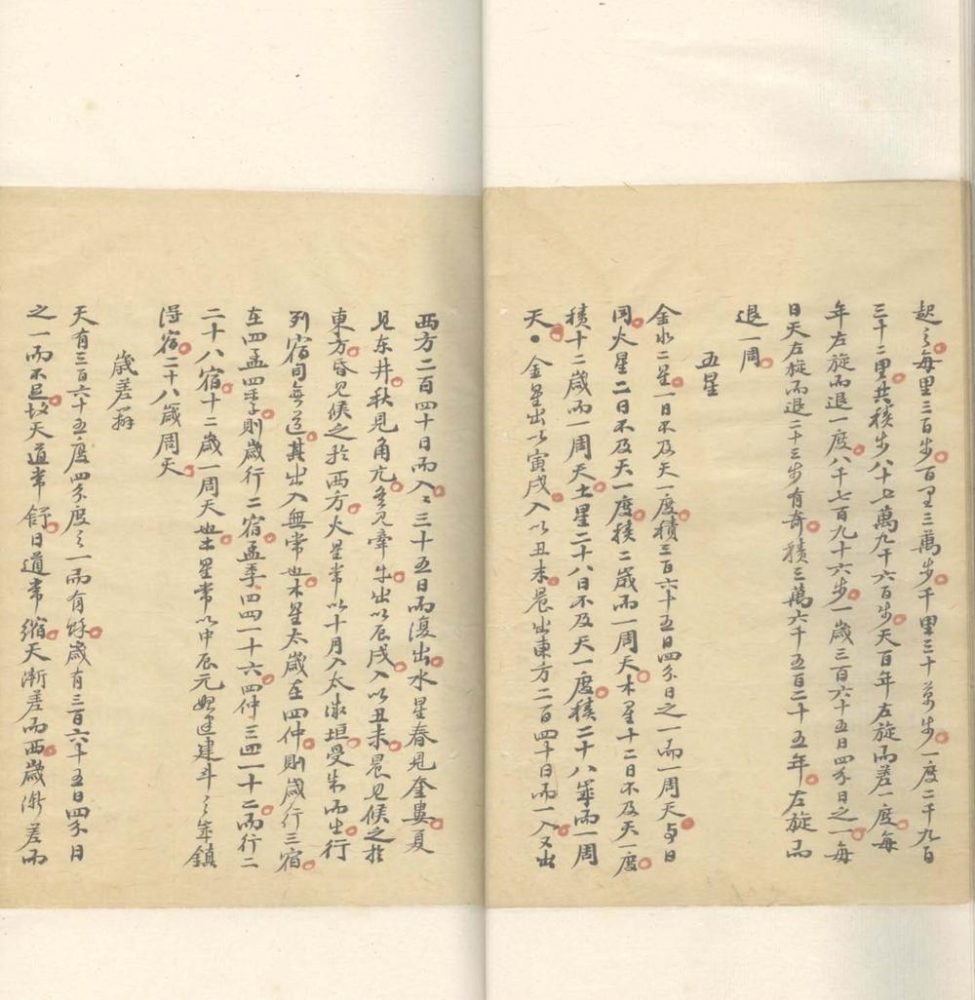 起之每里三百步百里三萬步千里三十萬步一度二千九百
三十二里共積步八十七萬九千六百步天百年左旋而差一度每
年左旋而退一度八千七百九十六步一歲三百六十五日四分日之一每
日天左旋而退二十三步有奇積三萬六千五百二十五年左旋而
退一周
五星
金水二星一日不及天一度積三百六十五日四分日之一而一周天与日
同火星二日不及天一度積二歲而一周天木星十二日不及天一度
積十二歲而一周天土星二十八日不及天一度積二十八年而一周
天金星出以寅戌入以丑未晨出東方二百四十日而一入又出
西方二百四十日而入入三十五日而復出水星春見奎婁夏
見东井秋見角亢冬見牽牛出以辰戌入以丑未晨見候之於
東方昏見候之於西方火星常以十月入太微垣受朱而出行
列宿司無道其出入無常也木星太歲在四仲則歲行三宿
在四孟四季則歲行二宿孟季四四一十六四仲三四一十二而行二
二十八宿十二歲一周天也土星常以中辰元始建斗之年鎮
得宿二十八歲周天
歲差辯
天有三百六十五度四分度之一而有餘歲有三百六十五日四分日
之一而不足故天道常舒日道常縮天漸差而西歲漸差而